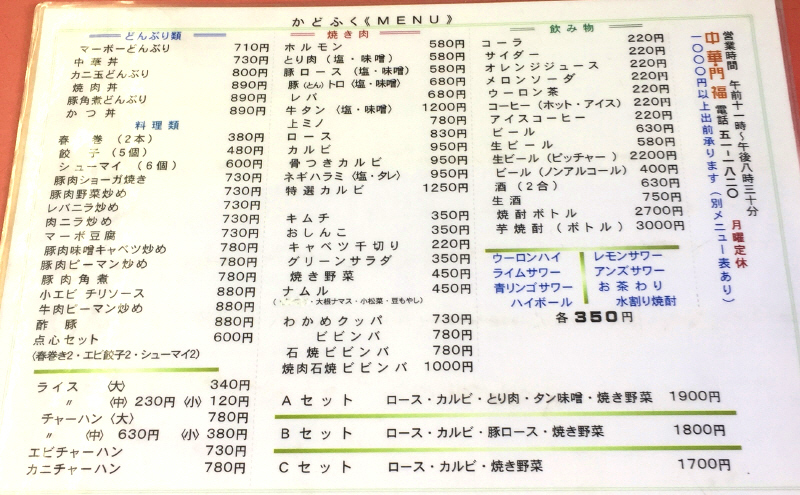 かどふく《MENU》
どんぶり類
マーボーどんぶり 710円
中華丼 730円
カニ玉どんぶり 800円
焼肉丼 890円
豚角煮どんぶり 890円
かつ丼 890円
料理類
春巻(2本) 380円
餃子(5個) 480円
シューマイ(6個) 600円
豚肉ショーガ焼き 730円
豚肉野菜炒め 730円
レバニラ炒め 730円
肉ニラ炒め 730円
マーボ豆腐 730円
豚肉味噌キャベツ炒め 780円
豚肉ピーマン炒め 780円
豚肉角煮 780円
小エビチリソース 880円
牛肉ピーマン炒め 880円
酢豚 880円
点心セット 600円
(春巻き2・エビ餃子2・シューマイ2)
ライス 〈大〉 340円
〃 〈中〉 230円 〈小〉 120円
チャーハン〈大〉 780円
〃 〈中〉 630円 〈小〉 380円
エビチャーハン 730円
カニチャーハン 780円
焼き肉
ホルモン 580円
とり肉(塩・味噌) 580円
豚ロース(塩・味噌) 680円
豚(とん)トロ(塩・味噌) 680円
レバ 680円
牛タン(塩・味噌) 1200円
上ミノ 780円
ロース 830円
カルビ 950円
骨つきカルビ 950円
ネギハラミ(塩・タレ) 950円
特選カルビ 1250円
キムチ 350円
おしんこ 350円
キャベツ千切り 220円
グリーンサラダ 350円
焼き野菜 450円
ナムル 450円
・大根ナマス・小松菜・豆もやし)
わかめクッパ 730円
ビビンバ 780円
石焼ビビンバ 780円
焼肉石焼ビビンバ 1000円
飲み物
コーラ 220円
サイダー 220円
オレンジジュース 220円
メロンソーダ 220円
ウーロン茶 220円
コーヒー(ホット・アイス) 220円
アイスコーヒー 220円
ビール 630円
生ビール 580円
生ビール(ピッチャー) 2200円
ビール(ノンアルコール) 400円
酒(2合) 630円
生酒 750円
焼酎ボトル 2700円
芋焼酎(ボトル) 3000円
ウーロンハイ レモンサワー
ライムサワー アンズサワー
青リンゴサワー お茶わり
ハイボール 水割り焼酎
各350円
Aセット ロース・カルビ・とり肉・タン味噌・焼き野菜 1900円
Bセット ロース・カルビ・豚ロース・焼き野菜 1800円
Cセット ロース・カルビ・焼き野菜 1700円
営業時間 午前十一時〜午後八時三十分
月曜定休
中華・門福 電話五一-一八二〇
一〇〇〇円以上出前承ります(別メニュー表あり)